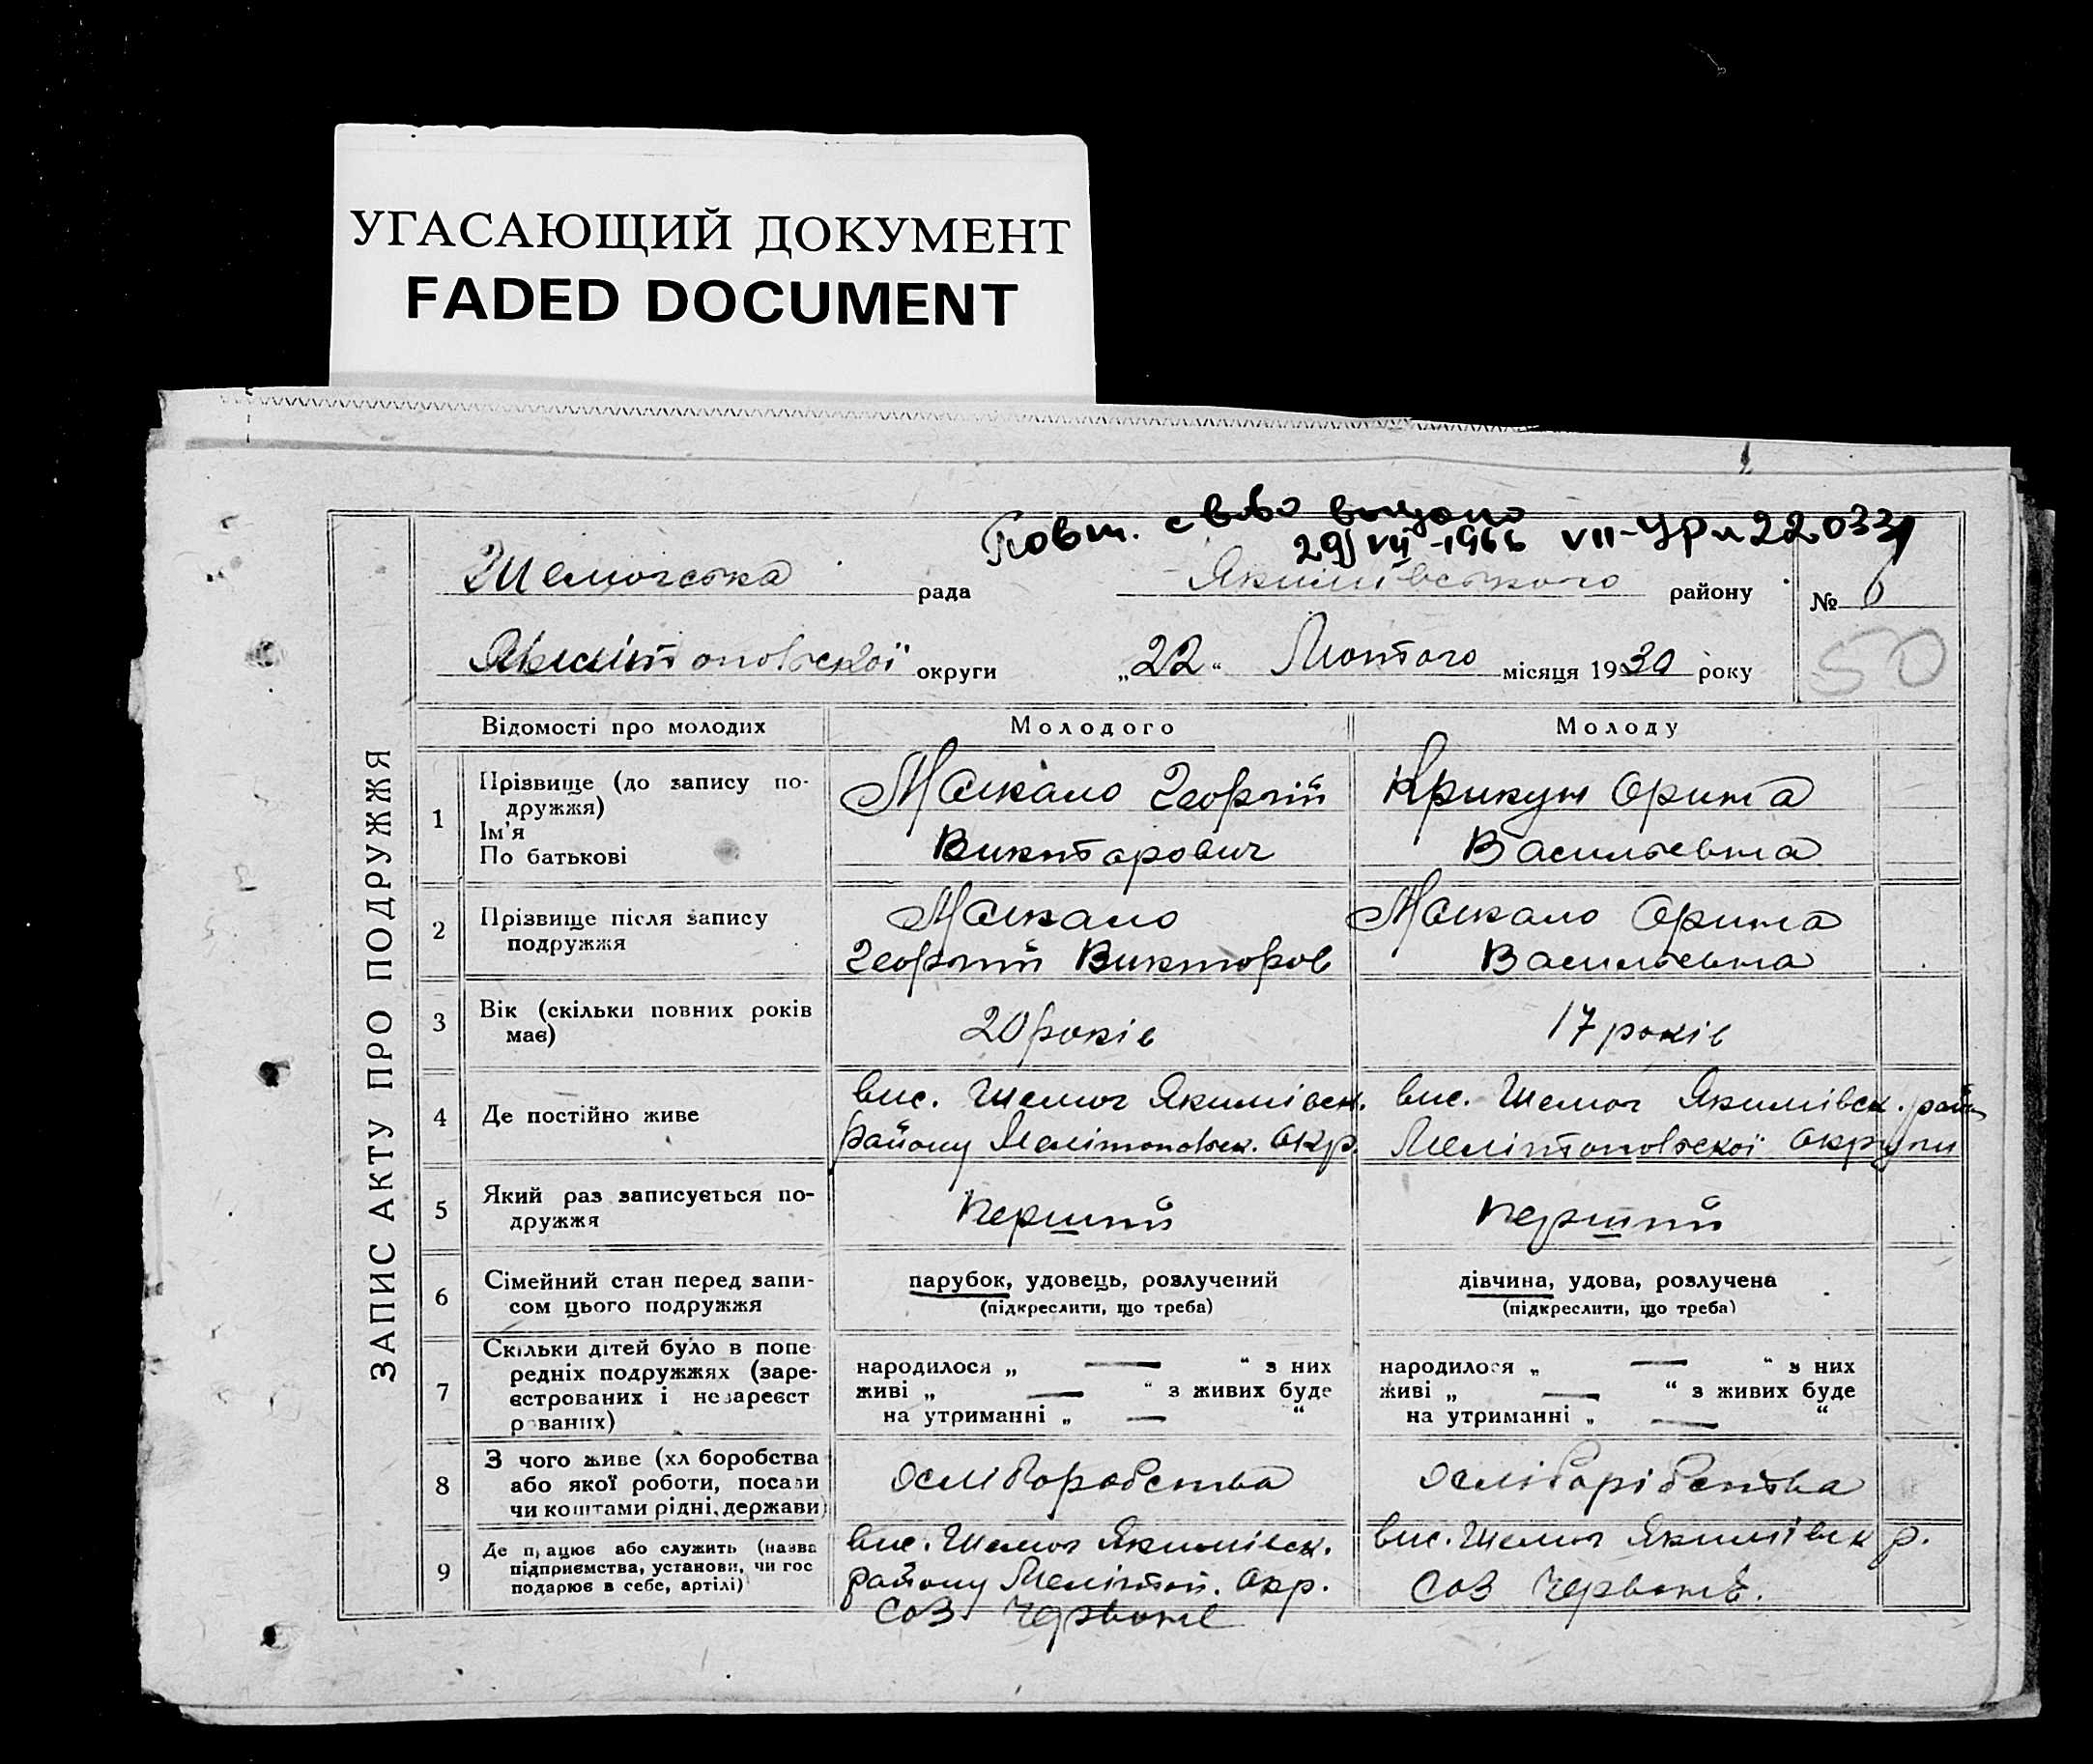 УГАСАЮЩИЙ ДОКУМЕНТ
FADED DOCUMENT
Повт. с-во выдано
29/VII-1966 VII-УР № 22.0331
рада Якимівського району № 6
Мелітопольскої округи „22“ Лютого місяця 1930 року
50
ЗАПИС АКТУ ПРО ПОДРУЖЖЯ
Відомості про молодих Молодого Молоду
1 Прізвище (до запису по-
дружжя)
Ім'я
По батькові
Георгій
Викторович
Крикун Орина
Васильевна
2 Прізвище після запису
подружжя
Георгий Викторов
Орина
Васильевна
3 Вік (скільки повних років
має)
20 років
17 років
4 Де постійно живе
вис. Якимівск.
району Мелітопольск. Окр.
вис. Якимівск. район
Мелітопольскої Округи
5 Який раз записується по-
дружжя
Перший
Перший
6 Сімейний стан перед запи-
сом цього подружжя
парубок, удовець, розлучений
(підкреслити, що треба)
дівчина, удова, розлучена
(підкреслити, що треба)
7 Скільки дітей було в попе
редніх подружжях (заре-
єстрованих і незареєст
рованих)
народилося „ — “ з них
живі „ — “ з живих буде
на утриманні „ — “
народилося „ — “ з них
живі „ — “ з живих буде
на утриманні „ — “
8 З чого живе (хліборобства
або якої роботи, посади
чи коштами рідні, держави)
хліборобства
хліборібства
9 Де працює або служить (назва
підприємства, установи, чи гос
подарює в себе, артілі)
вис. Якимівск.
району Мелітоп. Окр.
СОЗ Червоне
вис. Якимівск р.
СОЗ Червоне.